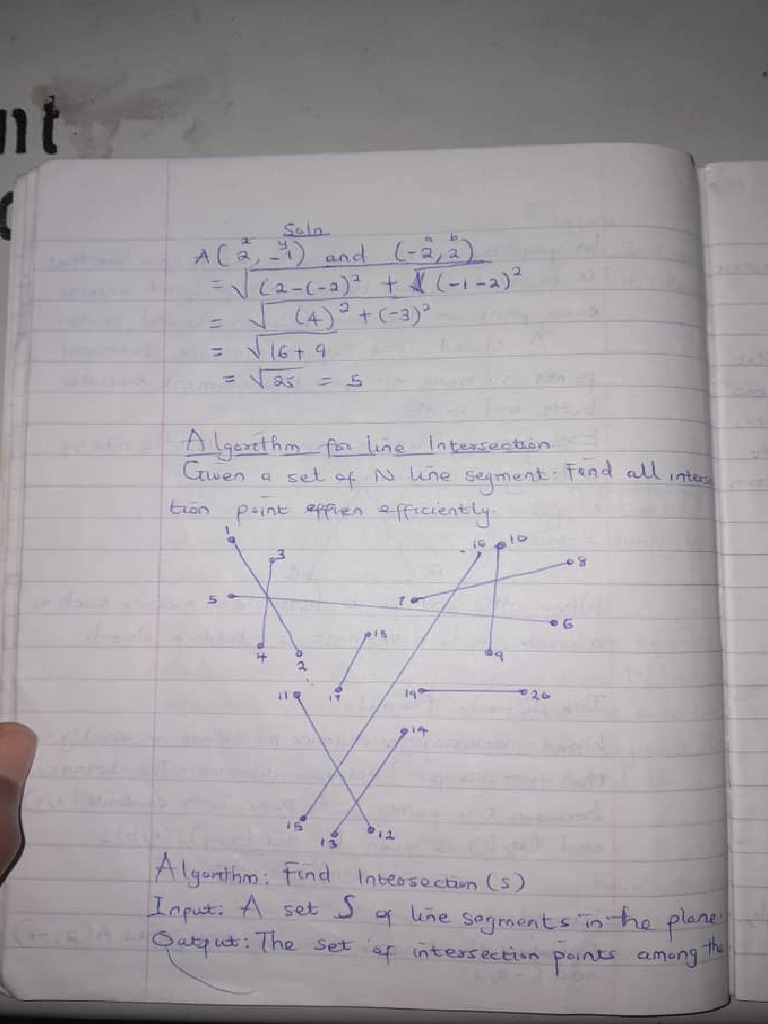 nt
Soln
x y a b
A(2, -1) and (-2, 2)
= √(2-(-2)² + (-1-2)²
= √(4)² + (-3)²
= √16 + 9
= √25 = 5
Algorithm for line Intersection
Given a set of N line segment. Find all intersec
tion point efficiently.
1
3
16 10
8
5
7
6
4
2
18
9
11
17
19
20
14
15
13
12
Algorithm: Find Intersection (S)
Input: A set S of line segments in the plane.
Output: The set of intersection points among the